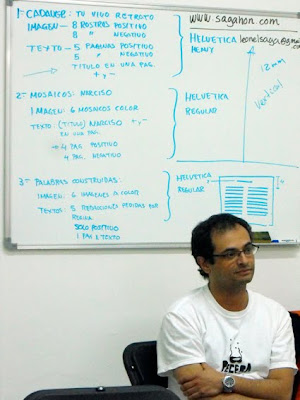 1- CADAVER: TU VIVO RETRATO
IMAGEN - 8 ROSTROS POSITIVO
8 " NEGATIVO
TEXTO - 5 PAGINAS POSITIVO
5 " NEGATIVO
TITULO EN UNA PAG.
+ y -
HELVETICA
HEAVY
www.sagahon.com
12mm
Vertical
2- MOSAICOS: NARCISO
IMAGEN: 6 MOSAICOS COLOR
TEXTO (TITULO) NARCISO +, -
EN UNA PAG
4 PAG POSITIVO
4 PAG NEGATIVO
HELVETICA
REGULAR
3- PALABRAS CONSTRUIDAS:
IMAGEN: 6 IMAGENES A COLOR
TEXTOS: 5 POR
SOLO POSITIVO
1 PAG X TEXTO
HELVETICA
REGULAR
PECERA